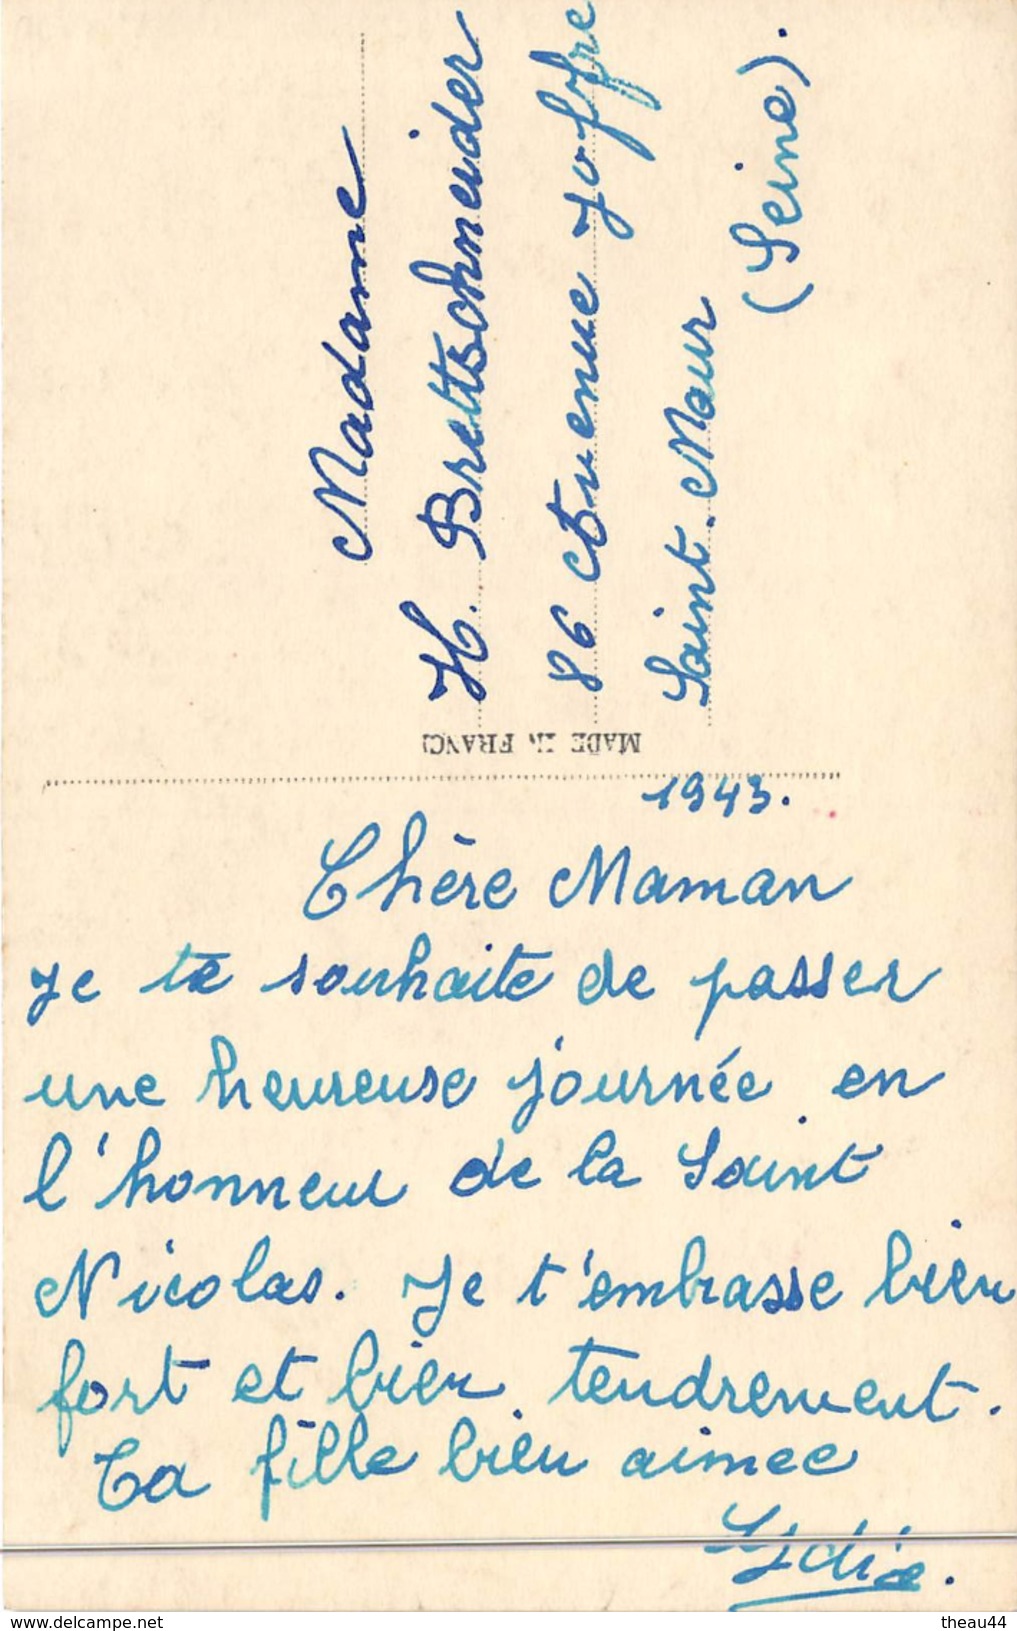 Madame
H. Brettschneider
86 Avenue Joffre
Saint. Maur
(Seine).
MADE IN FRANCE
1943.
Chère Maman
Je te souhaite de passer
une heureuse journée en
l'honneur de la Saint
Nicolas. Je t'embrasse bien
fort et bien tendrement.
Ta fille bien aimee
Lydie.
theau44